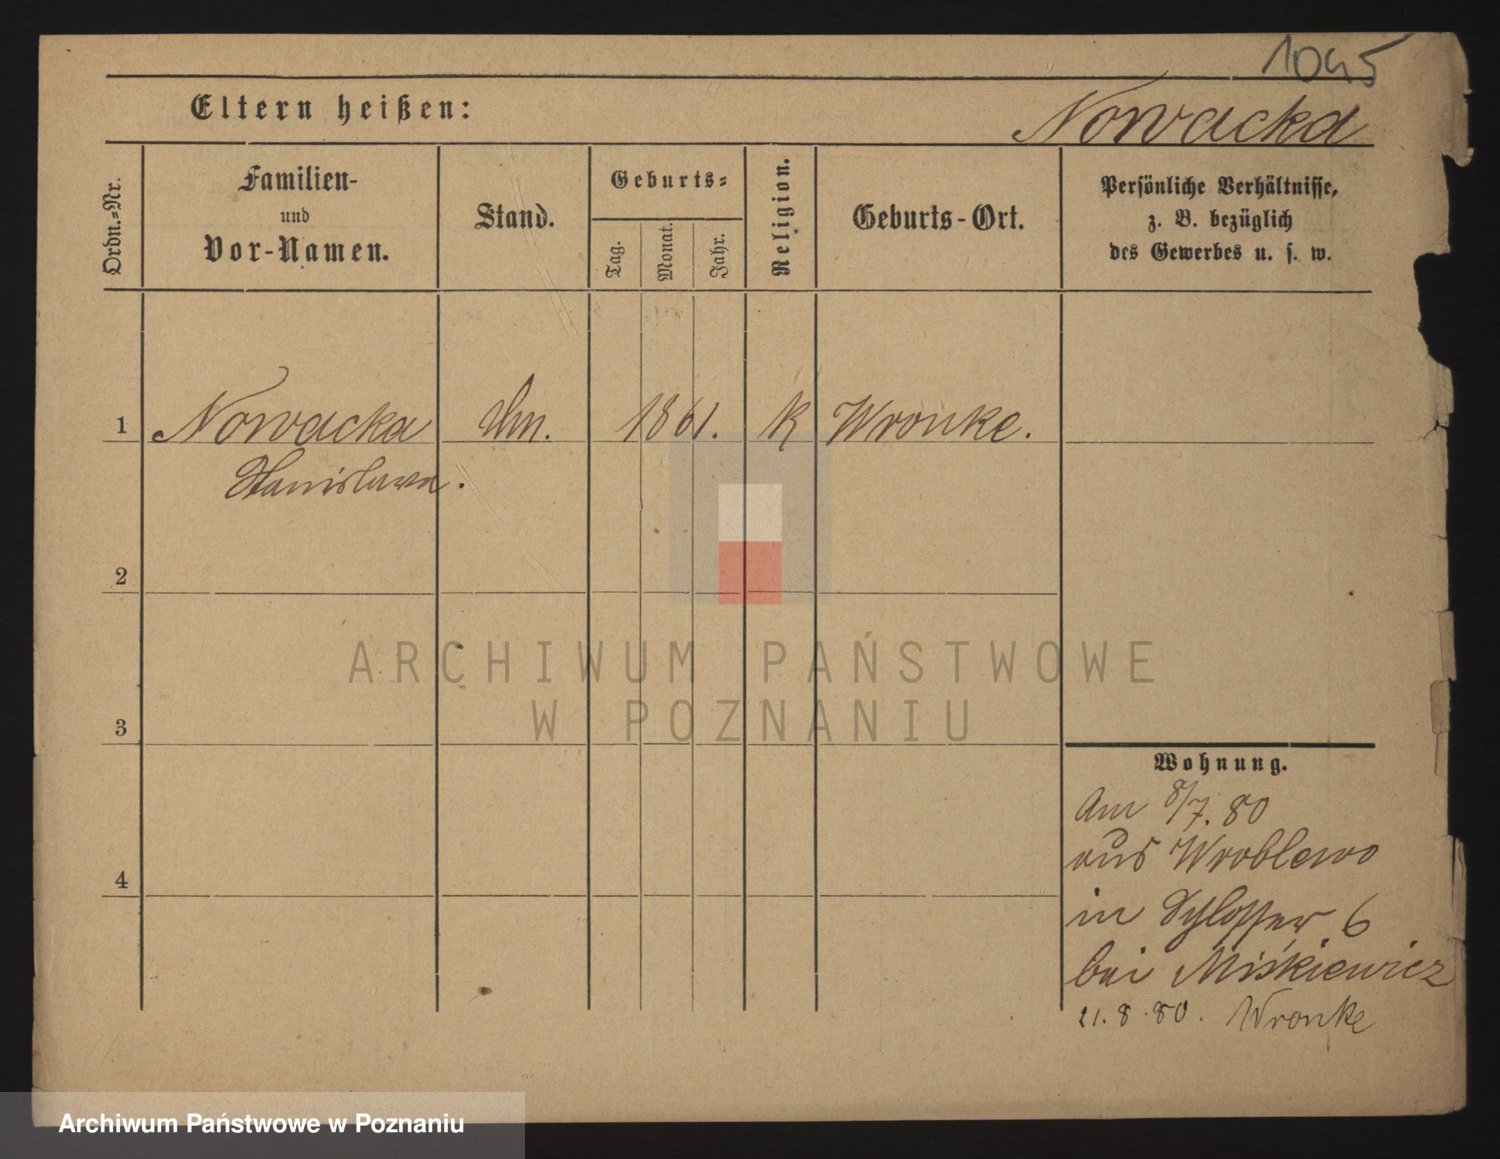 1045
Eltern heißen:
Nowacka
Ordn.-Nr.
Familien-
und
Vor-Namen.
Stand.
Geburts-
Tag.
Monat.
Jahr.
Religion.
Geburts-Ort.
Persönliche Verhältnisse,
z. B. bezüglich
des Gewerbes u. s. w.
1 Nowacka 1861. K Wronke.
Stanislawa.
2
3
4
Wohnung.
Am 8/7. 80
aus Wroblewo
in Schlosser 6
bei Miśkiewicz
21. 8. 80. Wronke
ARCHIWUM PAŃSTWOWE
W POZNANIU
Archiwum Państwowe w Poznaniu